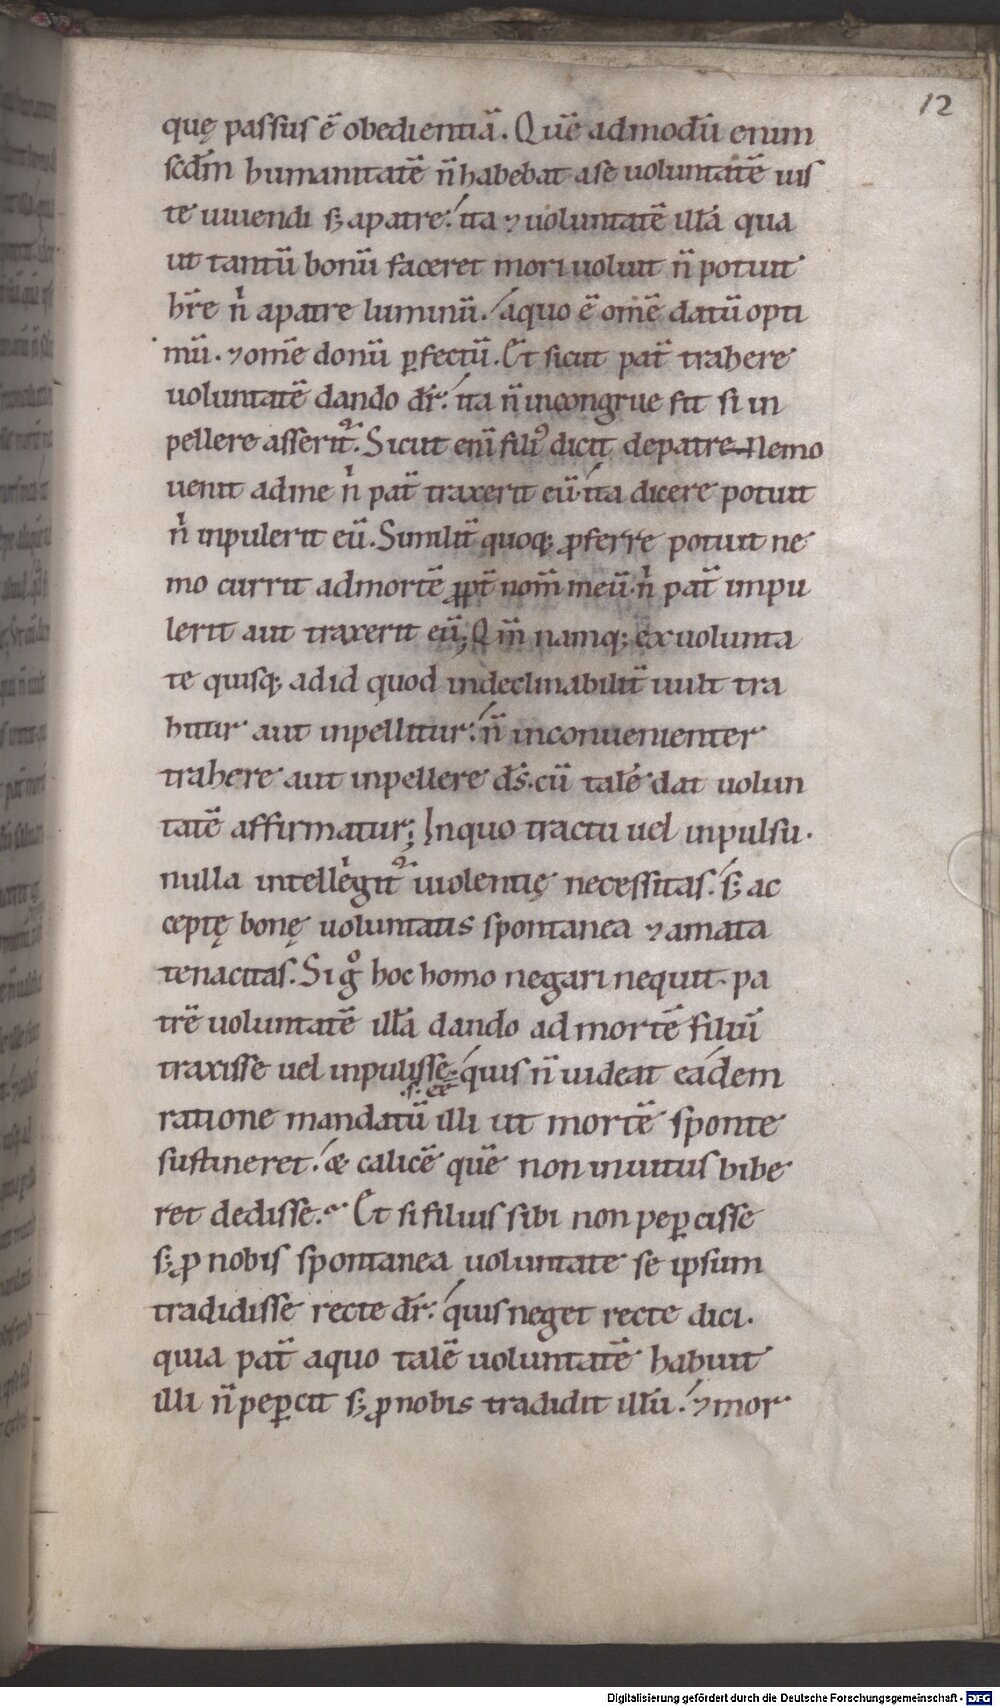 12
quę passus ē obedientiā. Quē admodū enim
scd̄m humanitatē n̄ habebat a se uoluntatē iuis
te uiuendi sꝫ a patre. ita ⁊ uoluntatē illā qua
ut tantū bonū faceret mori uoluit n̄ potuit
hr̄e n̓ a patre luminū. a quo ē om̄e datū opti
mū. ⁊ om̄e donū ꝑfectū. Et sicut pat̄ trahere
uoluntatē dando dr̄. ita n̄ incongrue fit si in
pellere asserit᷒. Sicut enī filiꝰ dicit de patre Nemo
uenit ad me n̓ pat̄ traxerit eū. ita dicere potuit
n̓ inpulerit eū. Similit̄ quoq; ꝓferre potuit ne
mo currit ad mortē ꝓpt̄ nom̄ meū. n̓ pat̄ impu
lerit aut traxerit eū; Qm̄ namq; ex uolunta
te quisq; ad id quod indeclinabilit̄ uult tra
hitur aut inpellitur. n̄ inconuenienter
trahere aut inpellere d̄s. cū talē dat uolun
tatē affirmatur; In quo tractu uel inpulsu.
nulla intellegit᷒ uiolentię necessitas. sꝫ ac
ceptę bonę uoluntatis spontanea ⁊ amata
tenacitas. Si gͦ hoc homo negari nequit. pa
trē uoluntatē illā dando ad mortē filiū
traxisse uel inpulisse. quis n̄ uideat eadem
.s. eē
ratione mandatū illi ut mortē sponte
sustineret. & calicē quē non inuitus bibe
ret dedisse. Et si filius sibi non peꝑcisse
sꝫ ꝓ nobis spontanea uoluntate se ipsum
tradidisse recte dr̄. quis neget recte dici.
quia pat̄ a quo talē uoluntatē habuit
illi n̄ peꝑcit sꝫ ꝓ nobis tradidit illū. ⁊ mor
Digitalisierung gefördert durch die Deutsche Forschungsgemeinschaft - DFG